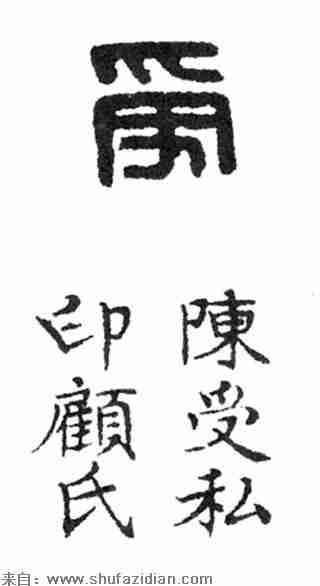 受
陳受私
印顧氏
来自：www.shufazidian.com